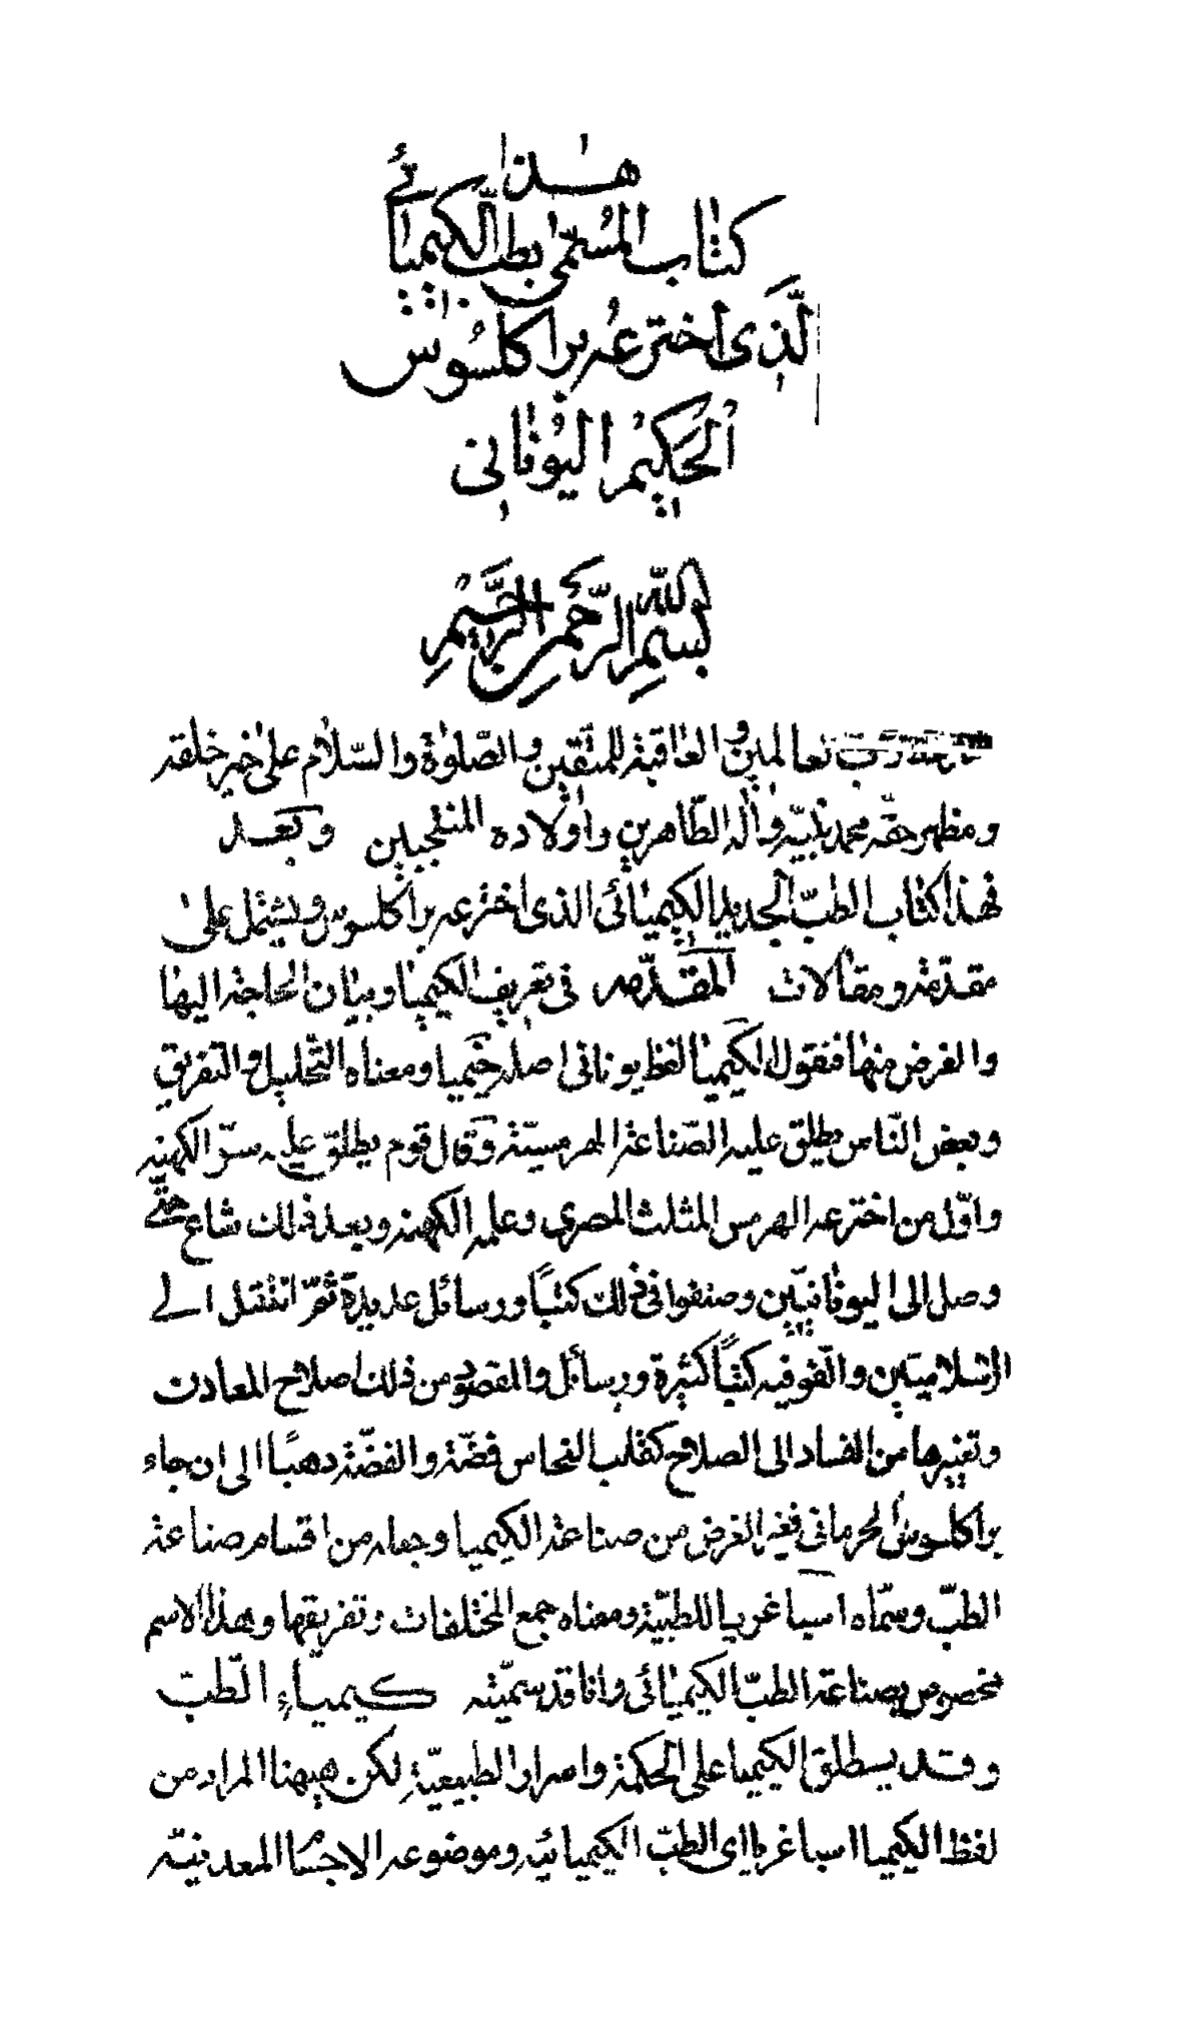 هٰذا
كتاب المسمّى بطبّ الكيميائي
لّذى اخترعه براكلسوس
الحكيم اليونانى
بسم الله الرّحمن الرّحيم
الحمد لله ربّ العالمين والعاقبة للمتّقين والصّلوة والسّلام على خير خلقه
ومظهر حقّه محمد نبيّه وآله الطّاهرين واولاده المنتجبين وبعد
فهذا كتاب الطبّ الجديد الكيميائى الذى اخترعه براكلسوس ويشتمل على
مقدّمة ومقالات المقدّمه فى تعريف الكيميا وبيان الحاجة اليها
والغرض منها فنقول الكيميا لفظ يونانى اصله خيميا ومعناه التّحليل والتفريق
وبعض النّاس يطلق عليه الصّناعة الهرمسيّة وقال قوم يطلق عليه سرّ الكهنه
واوّل من اخترعه الهرمس المثلث المصرى وعلمه الكهنه وبعد ذلك شاع حتّى
وصل الى اليونانيّين وصنفوا فى ذلك كتبًا ورسائل عديدة ثمّ انتقل الى
الاسلاميّين والّفو فيه كتبًا كثيرة ورسائل والمقصود من ذلك اصلاح المعادن
وتغييرها من الفساد الى الصلاح كقلب النحاس فضّة والفضّة ذهبًا الى ان جاء
براكلسوس الجرمانى فغير الغرض من صناعة الكيميا وجعله من اقسام صناعة
الطبّ وسمّاه اسباغريا للطبّية ومعناه جمع المختلفات وتفريقها وهذا الاسم
مخصوص بصناعة الطبّ الكيميائى وانا قد سميّته كيمياء الطّب
وقد يسطلق الكيميا على الحكمة واسرار الطبيعيّة لكن هيهنا المراد من
لفظ الكيميا اسباغريا اى الطبّ الكيميائيه وموضوعه الاجسا المعدنيّه